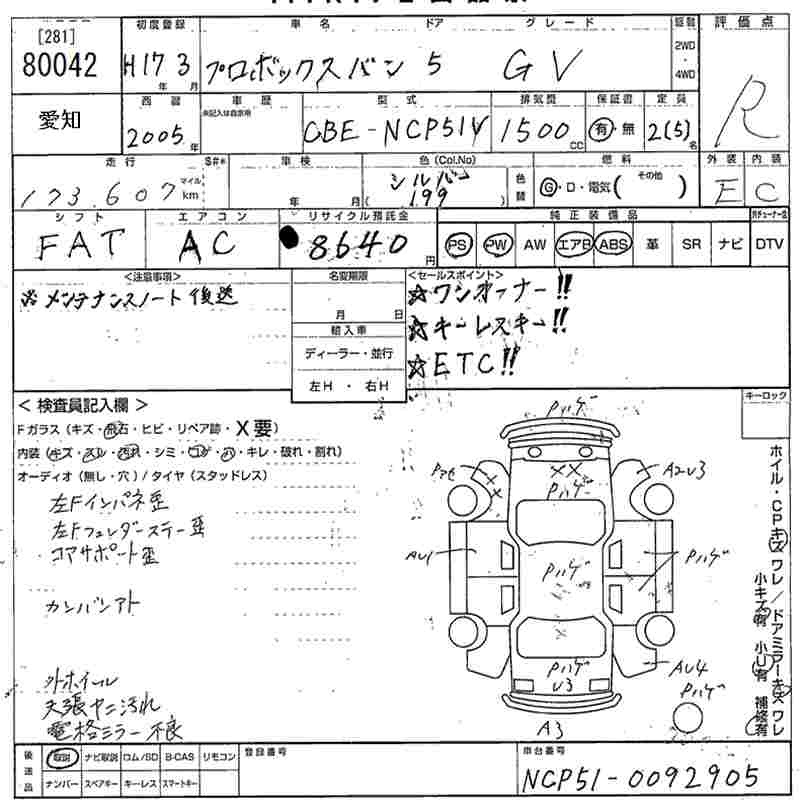 [281]
80042
愛知
初度登録
H17 年 3 月
車名
ドア
グレード
プロボックスバン 5 GV
駆動
2WD
・
4WD
評価点
R
西暦
2005 年
車歴
未記入は自家用
型式
CBE-NCP51V
排気量
1500 cc
保証書
有・無
定員
2(5)名
走行
173,607 マイル km
S#*
車検
年 月
色(Col.No)
シルバー
(199)
色替
燃料
G・D・電気( その他 )
外装
E
内装
C
シフト
FAT
エアコン
AC
リサイクル預託金
8640 円
純正装備品
PS PW AW エアB ABS 革 SR ナビ DTV
<注意事項>
※メンテナンスノート後送
名変期限
月 日
輸入車
ディーラー・並行
左H ・ 右H
<セールスポイント>
☆ワンオーナー!!
☆キーレスキー!!
☆ETC!!
キーロック
< 検査員記入欄 >
Fガラス(キズ・飛石・ヒビ・リペア跡・X要)
内装(キズ・スレ・汚れ・シミ・コゲ・穴・キレ・破れ・割れ)
オーディオ(無し・穴)/タイヤ(スタッドレス)
左Fインパネ歪
左Fフェンダーステー歪
コアサポート歪
カンバンアト
外ホイール
天張ヤニ汚れ
電格ミラー不良
Pハゲ
XX
Pハゲ
A2U3
AU1
Pハゲ
Pハゲ
Pハゲ
U3
AU4
Pハゲ
A3
ホイル・CPキズワレ/ドアミラーキズワレ
小キズ有 小U有 補修有
後送品
取説 ナビ取説 ロム/SD B-CAS リモコン
ナンバー スペアキー キーレス スマートキー
登録番号
車台番号
NCP51-0092905